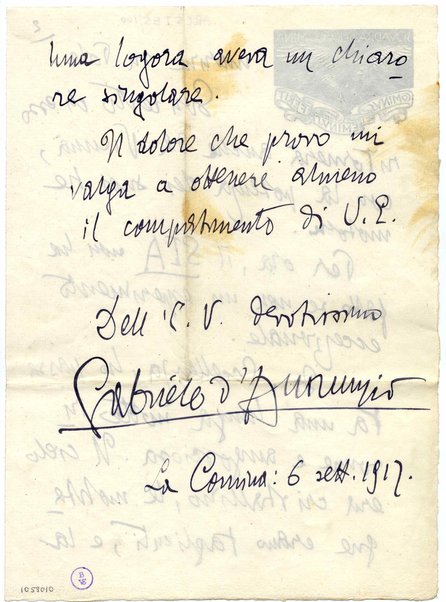 luna logora aveva un chiaro
re singolare.
Il dolore che provo mi
valga a ottenere almeno
il compatimento di V. E.
Dell' E. V. devotissimo
Gabriele d'Annunzio
La Comina: 6 sett. 1917.
1058010